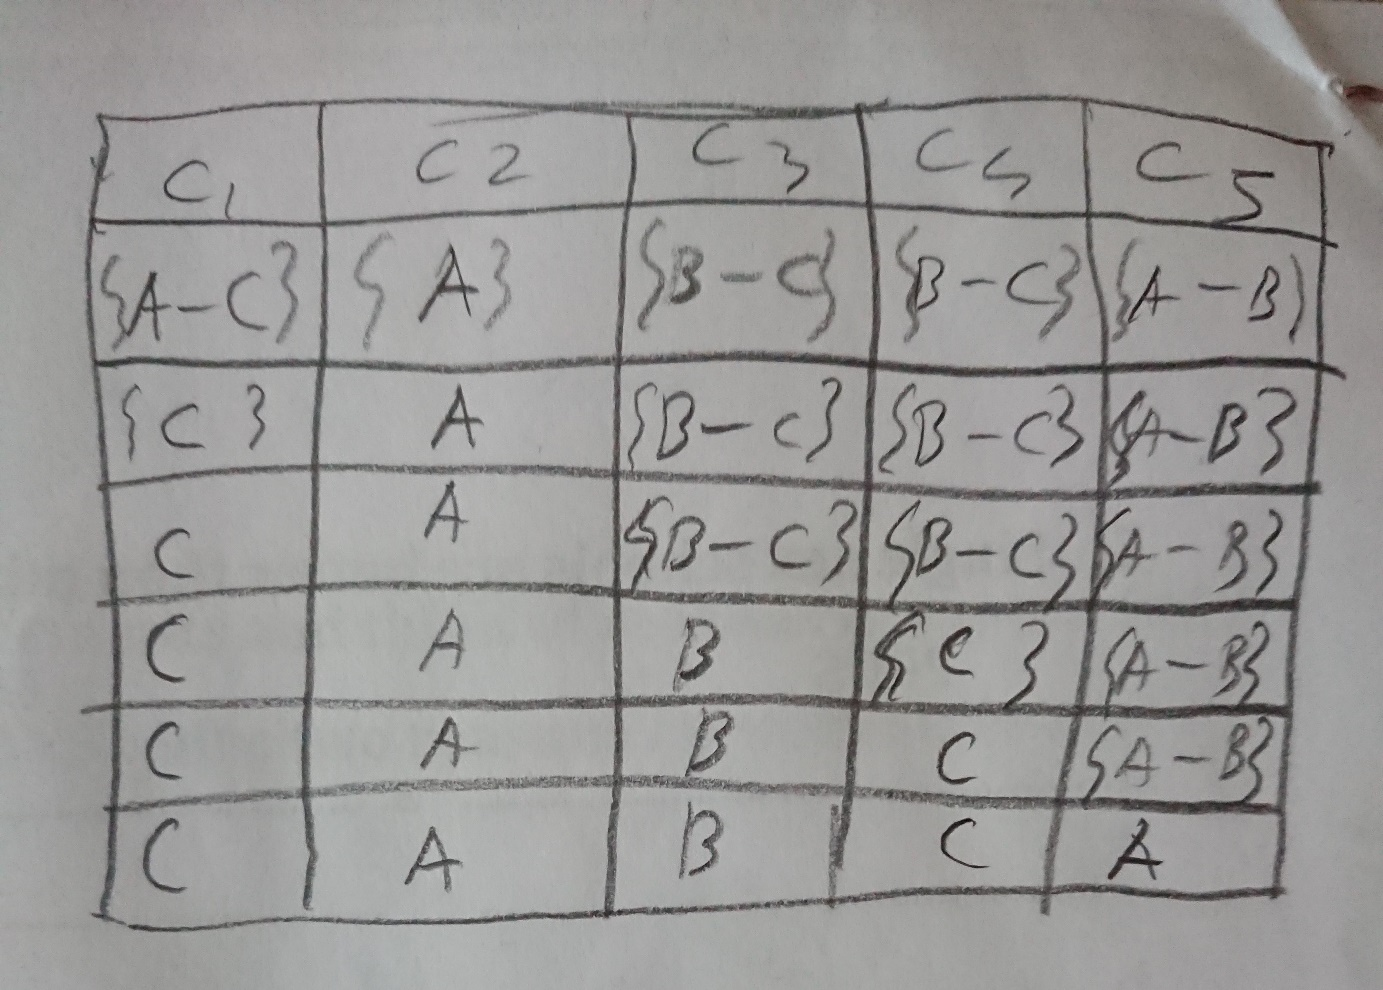 C1 C2 C3 C4 C5
{A-C} {A} {B-C} {B-C} {A-B)
{C} A {B-C} {B-C} {A-B}
C A {B-C} {B-C} {A-B}
C A B {C} {A-B}
C A B C {A-B}
C A B C A